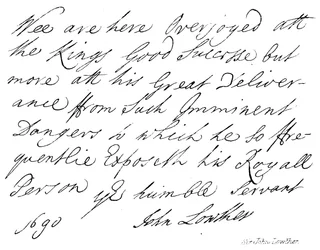 Wee are here Overjoyed att
the Kings Good Succese but
more att his Great Deliver-
ance ffrom Such Imminent
Dangers is which he So ffre-
quentlie Exposeth his Royall
Person yr humble Servant
1690 John Lowther
John Lowther